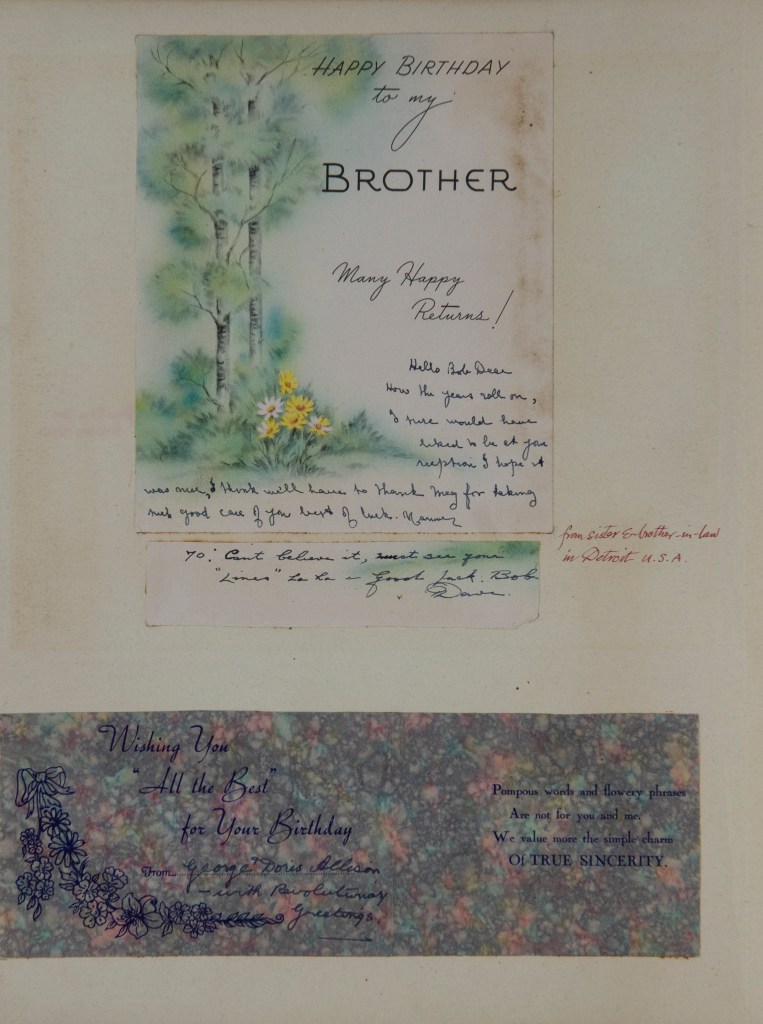 HAPPY BIRTHDAY
to my
BROTHER
Many Happy
Returns!
Hello Bob Dear
How the years roll on,
I sure would have
liked to be at your
reception I hope it
was nice, I think we'll have to thank Meg for taking
such good care of you best of luck.
70! Cant believe it, must see your
"Lines" La La - Good luck. Bob
Dave.
from sister & brother-in-law
in Detroit U.S.A.
Wishing You
"All the Best"
for Your Birthday
From... George & Doris Allison
- with Revolutinay
Greetings
Pompous words and flowery phrases
Are not for you and me.
We value more the simple charm
Of TRUE SINCERITY.